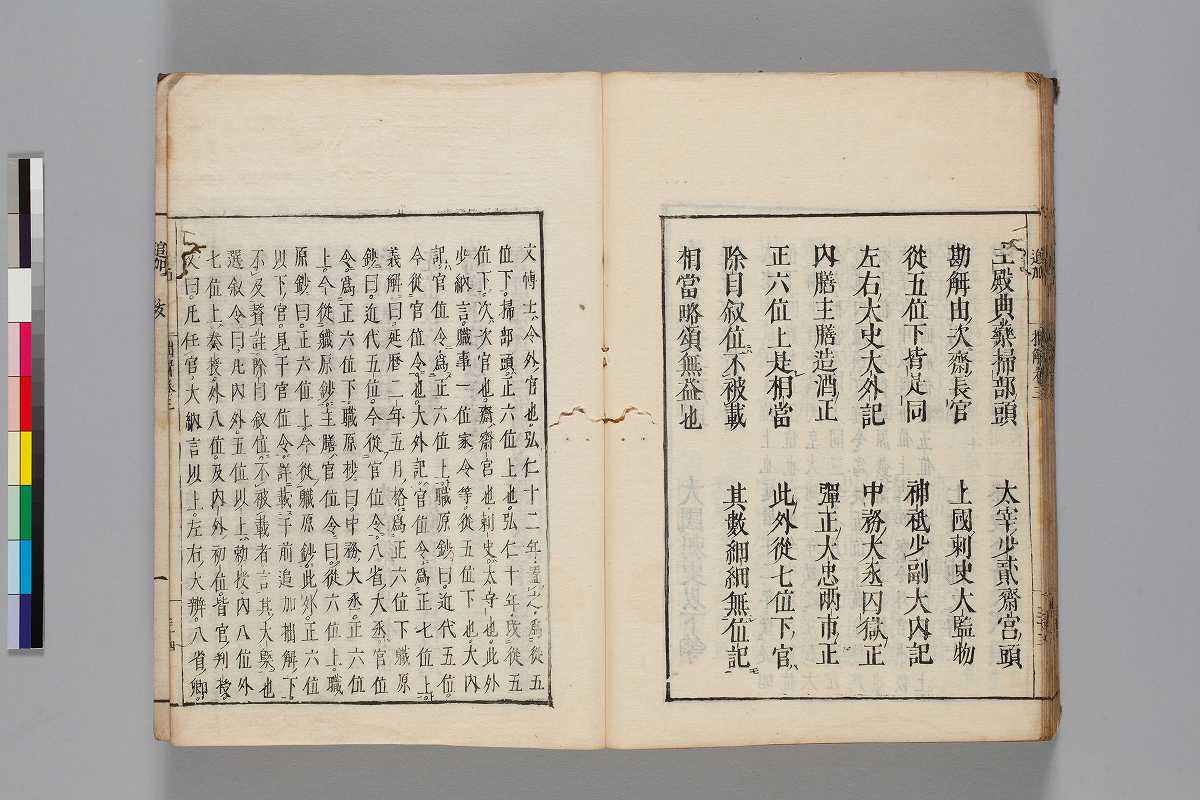 主殿典藥掃部頭 太宰少貳齋宮頭
勘解由次齋長官 上國刺史大監物
從五位下皆是同 神祇少副大内記
左右大史大外記 中務大丞囚獄正
内膳主膳造酒正 彈正大忠兩市正
正六位上是相當 此外從七位下官
除目叙位不被載 其數細細無位記
相當略頌無益也
文博士、令外官也。弘仁十二年置二人、爲從五
位下。掃部頭。正六位上也。弘仁十年、改從五
位下。次、次官也。齋、齋宮也。刺史、太守也。此外
少納言。職事一位家、令等。從五位下也。大内
記、官位令、爲正六位上。職原鈔曰。近代五位。
今從官位令也。大外記。官位令、爲正七位上。
義解曰。延曆二年五月、格爲正六位下。職原
鈔曰。近代五位。今從官位令。八省大丞。官位
令、爲正六位下。職原抄曰。中務大丞。正六位
上。今從職原鈔。主膳。官位令曰。從六位上。職
原鈔曰。正六位上。今從職原鈔。此外。正六位
以下官。見于官位令。詳載于前追加拙解下。
不及贅註。除目叙位。不被載者。言其大槩也
選叙令曰。凡内外五位以上、勅授。内八位外
七位上、奏授。外八位及内外初位。皆官判授。
又曰。凡任官、大納言以上。左右大辨。八省卿。